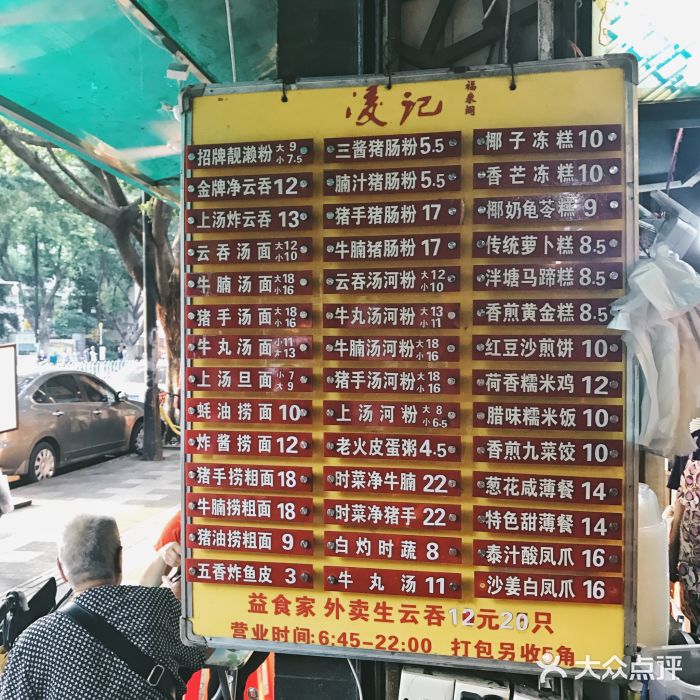 凌记
福来阁
招牌靓濑粉 大9 小7.5
金牌净云吞 12
上汤炸云吞 13
云吞汤面 大12 小10
牛腩汤面 大18 小16
猪手汤面 大18 小16
牛丸汤面 小11 大13
上汤旦面 小7 大9
蚝油捞面 10
炸酱捞面 12
猪手捞粗面 18
牛腩捞粗面 18
猪油捞粗面 9
五香炸鱼皮 3
三酱猪肠粉 5.5
腩汁猪肠粉 5.5
猪手猪肠粉 17
牛腩猪肠粉 17
云吞汤河粉 大12 小10
牛丸汤河粉 大13 小11
牛腩汤河粉 大18 小16
猪手汤河粉 大18 小16
上汤河粉 大8 小6.5
老火皮蛋粥 4.5
时菜净牛腩 22
时菜净猪手 22
白灼时蔬 8
牛丸汤 11
椰子冻糕 10
香芒冻糕 10
椰奶龟苓糕 9
传统萝卜糕 8.5
泮塘马蹄糕 8.5
香煎黄金糕 8.5
红豆沙煎饼 10
荷香糯米鸡 12
腊味糯米饭 10
香煎九菜饺 10
葱花咸薄餐 14
特色甜薄餐 14
泰汁酸凤爪 16
沙姜白凤爪 16
益食家 外卖生云吞12元20只
营业时间:6:45-22:00 打包另收5角
大众点评